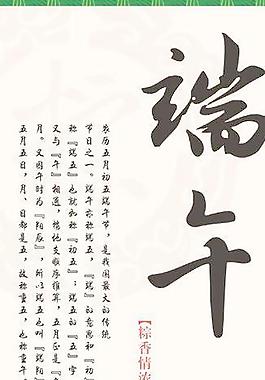 端午
【粽香情浓
农历五月初五端午节，是我国最大的传统
节日之一。端午亦称端五，『端』的意思和『初』
称『端五』也就如称『初五』；端五的『五』字
又与『午』相通，按地支顺序推算，五月正是『
月。又因午时为『阳辰』，所以端五也叫『端阳
五月五日，月、日都是五，故称重五，也称重午